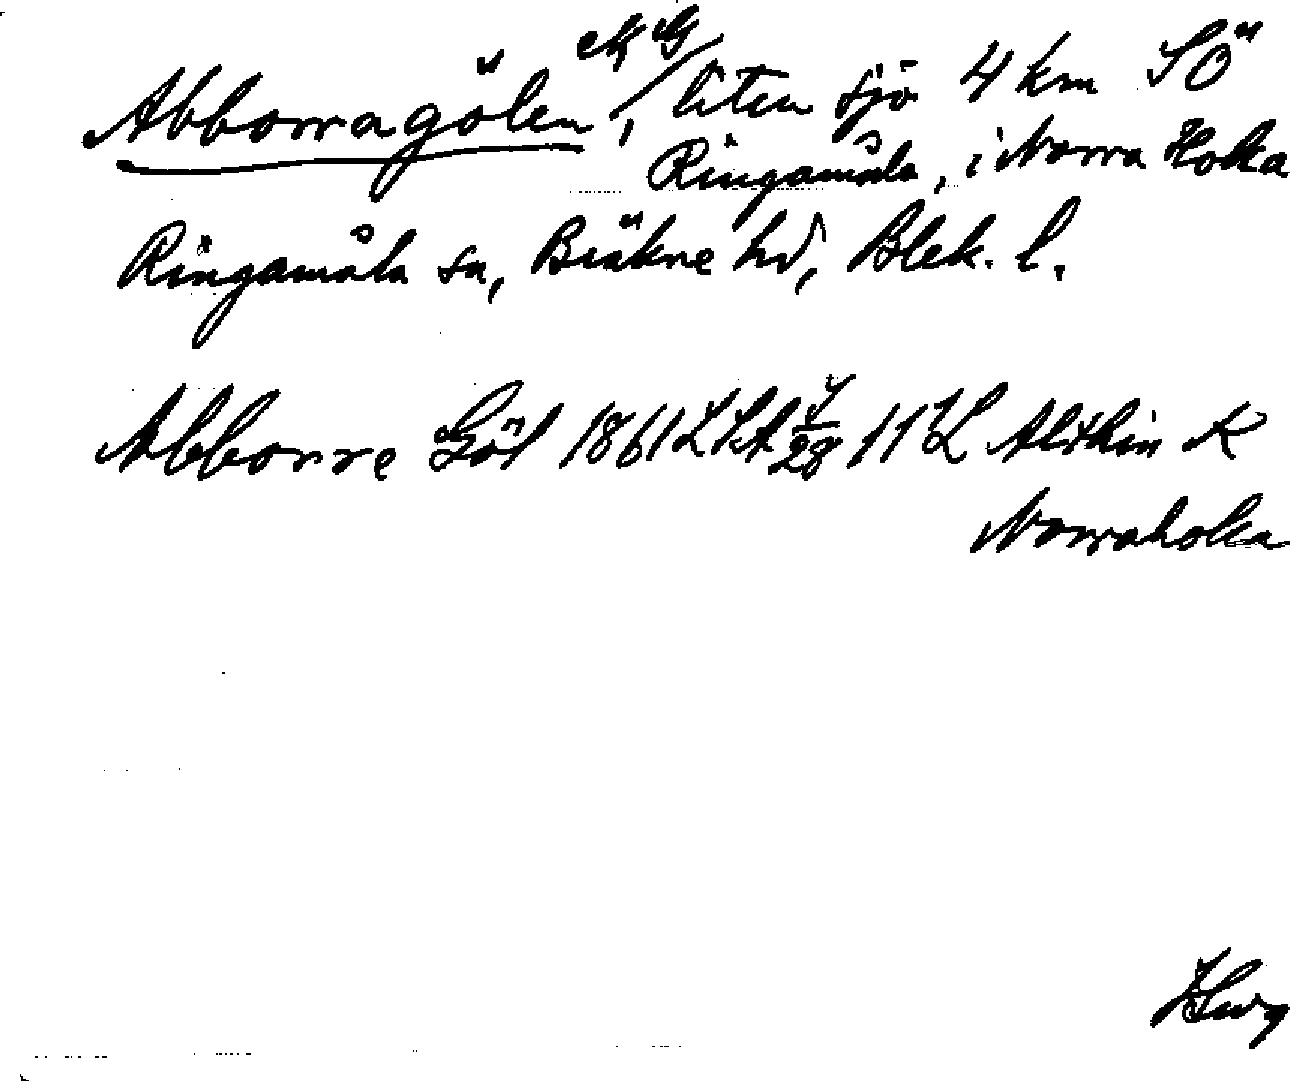 Abborragölen, liten sjö 4 km SÖ
Ringamåla, i Norra Hoka
Ringamåla sn, Bräkne hd, Blek. l.
Abborre Göl 1861 LSkA 28 11 L Alskin K
Norrahoka